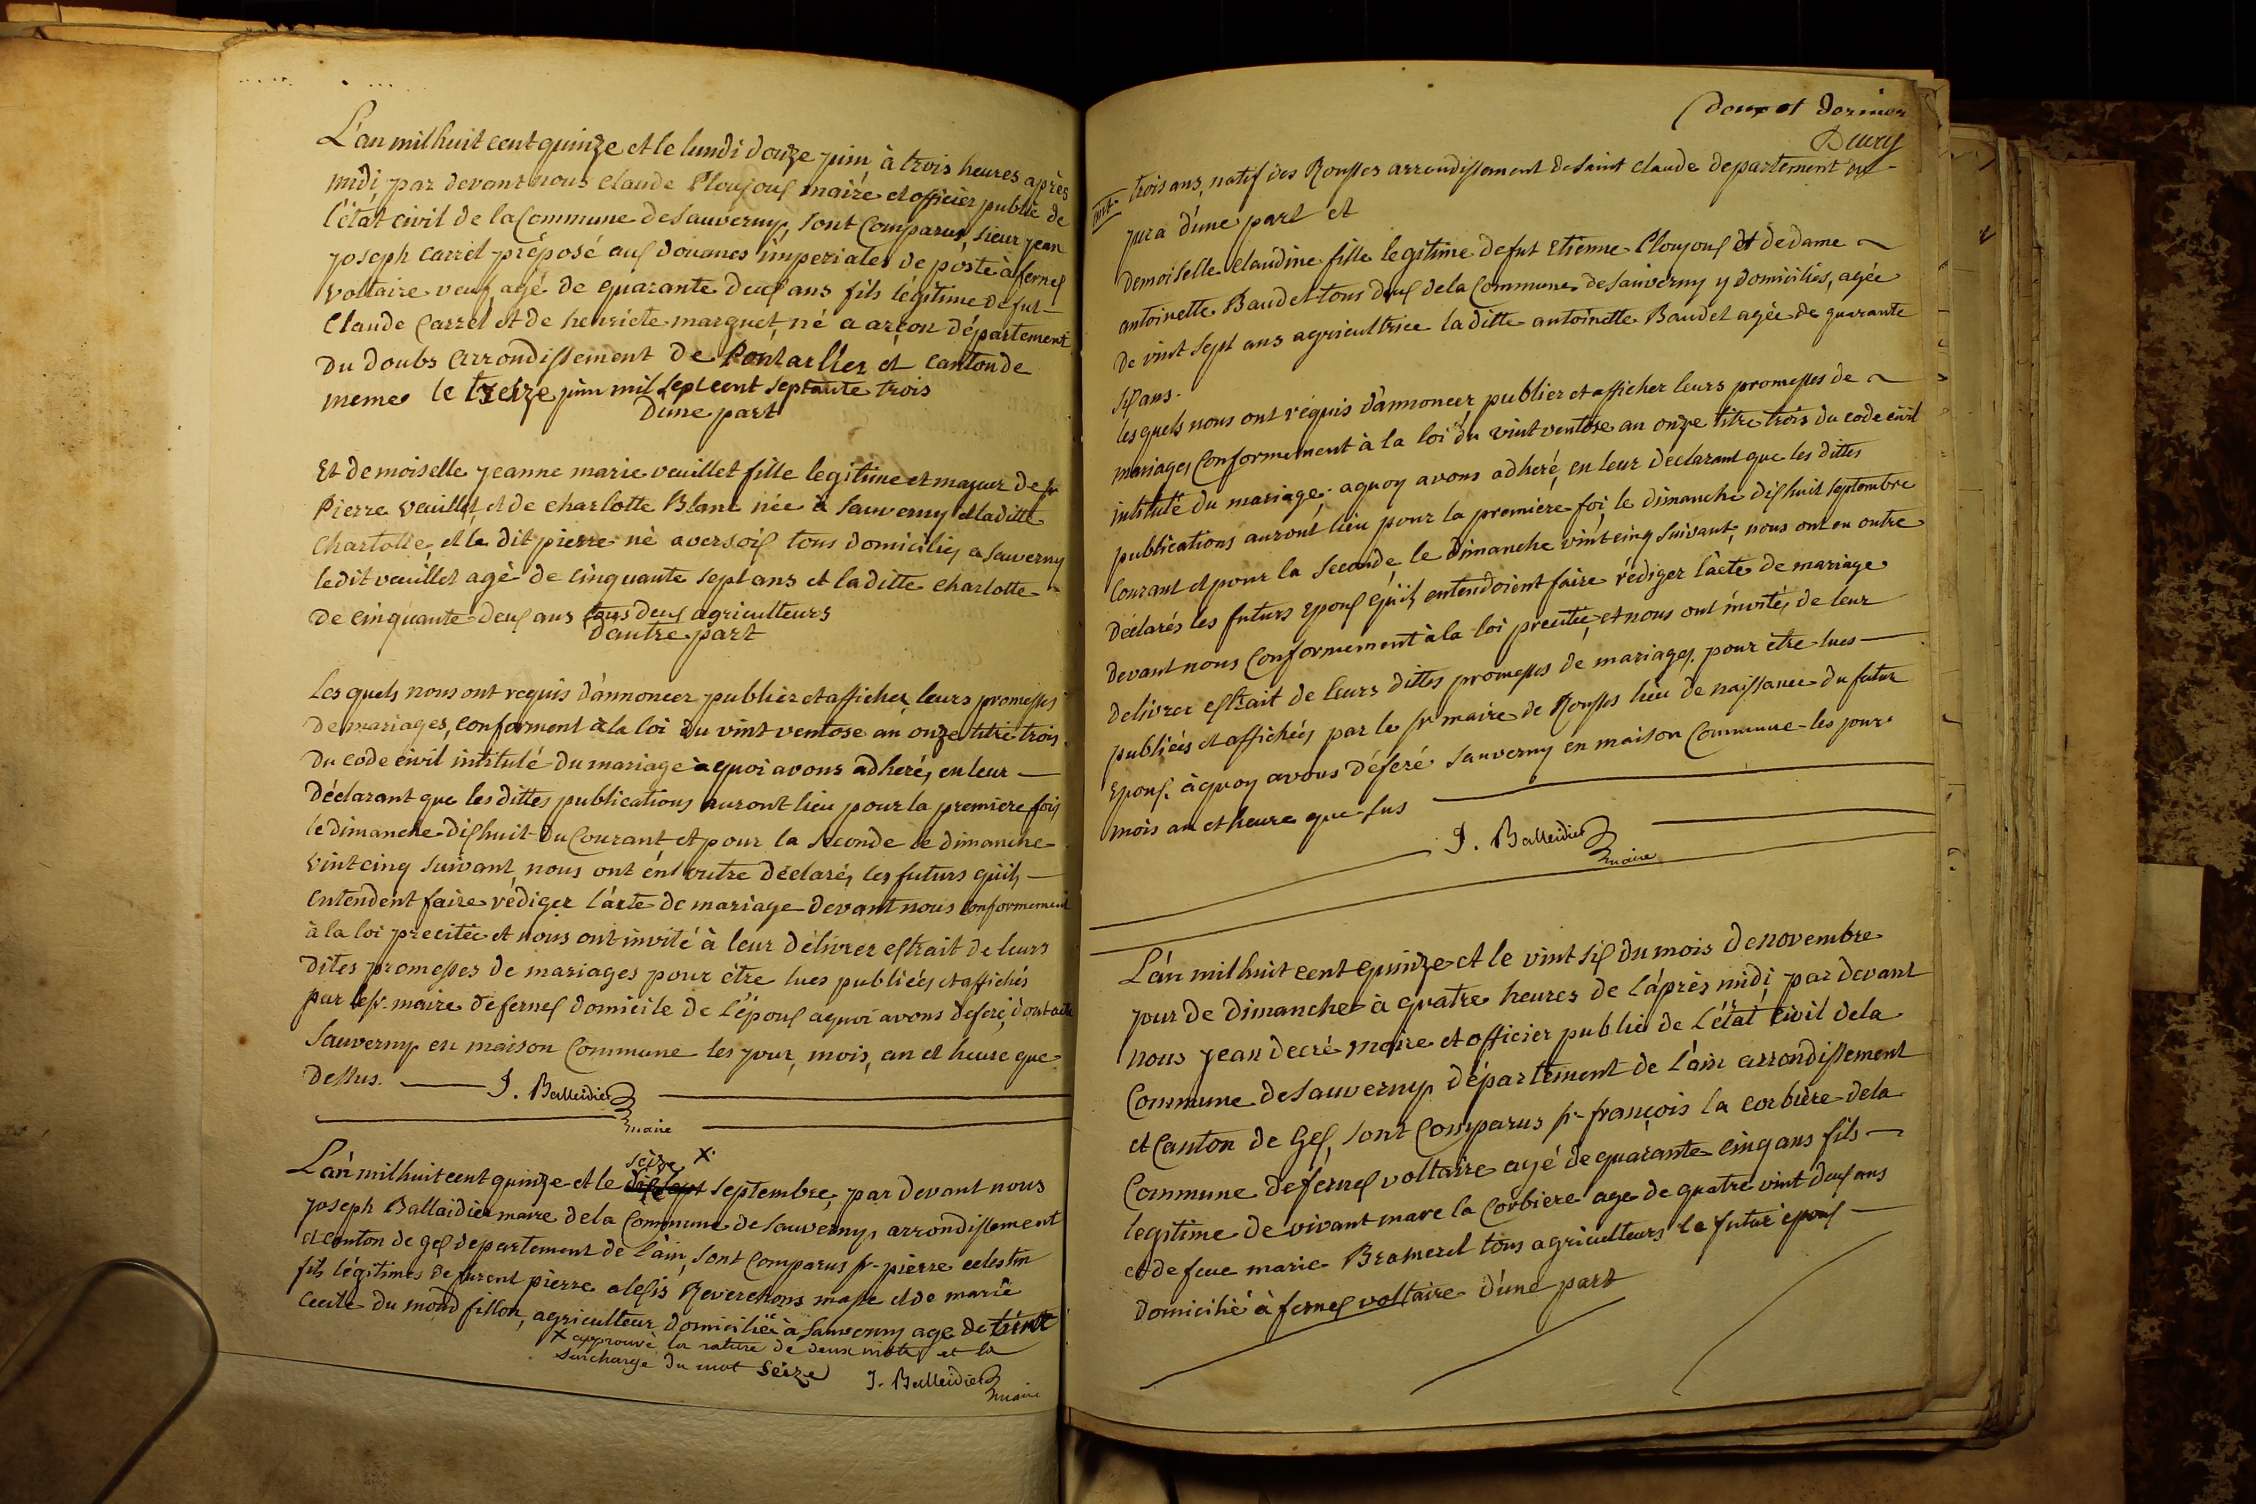 L'an mil huit cent quinze et le lundi douze juin à trois heures après
midi par devant nous claude Ploujoux maire et officier public de
l'état civil de la Commune de Sauverny, sont Comparus, sieur jean
joseph carrel préposé aux douanes impériales de poste à fernex
voltaire veuf, agé de quarante deux ans fils legitime de fut
Claude Carrel et de henriete marguet, né a arçon département
du doubs arrondissement de Pontarlier et canton de
meme le treize juin mil sept cent septante trois
d'une part
Et demoiselle jeanne marie veuillet fille legitime et majeur de sr
Pierre veuillet, et de charlotte Blanc née à Sauverny et laditte
charlotte, et le dit pierre né a versoix tous domiciliés a sauverny
ledit veuillet agé de cinquante sept ans et laditte charlotte
de cinquante deux ans tous deux agriculteurs
d'autre part
Les quels nous ont requis d'annoncer publier et afficher leurs promesses
de mariages, conforment à la loi du vint ventose an onze titre trois
du code civil intitulé du mariage à quoi avons adheré, en leur
déclarant que les dittes publications auront lieu pour la premiere fois
le dimanche dixhuit du Courant et pour la seconde le dimanche
vint cinq suivant, nous ont én outre déclaré, les futurs qu'ils
entendent faire rédiger l'acte de mariage devant nous conformement
à la loi precitée et nous ont invité à leur délivrer extrait de leurs
dites promesses de mariages pour être lues publiées et affichés
par le sr maire de fernex domicile de l'époux aquoi avons deferé, dont acte
Sauverny en maison Commune les jour, mois, an et heure que
dessus. J. Balleidier
maire
seize x
L'an mil huit cent quinze et le dix sept septembre, par devant nous
joseph Ballaidier maire de la Commune de Sauverny, arrondissement
et canton de gex departement de l'ain, sont comparus sr pierre celestin
fils légitimes de furent pierre alexis Reverchons maste et de marie
cecile du mond fillon, agriculteur domicilié à Sauverny age de trint
x approuvé la rature de deux mots et la
surcharge du mot seize J. Balleidier
maire
deux et dernier
Decry
trois ans, natif des Rousses arrondissement de Saint claude departement du
jura d'une part et
demoiselle claudine fille legitime de fut Etienne Ploujoux et de dame
antoinette Baudet tous deux de la Commune de Sauverny y domiciliés, agée
de vint sept ans agricultrice laditte antoinette Baudet agée de quarante
six ans.
les quels nous ont réquis d'annoncer, publier et afficher leurs promesses de
mariages Conformement à la loi du vint ventose an onze titre trois du code civil
intitulé du mariage; aquoy avons adheré, en leur déclarant que les dittes
publications auront lieu pour la premiere foi, le dimanche dixhuit septembre
Courant et pour la seconde, le dimanche vint cinq suivant, nous ont en outre
déclarés les futurs epoux qu'ils entendoient faire rédiger l'acte de mariage
devant nous Conformement à la loi precitée, et nous ont invités de leur
delivrer extrait de leurs dittes promesses de mariages pour être lues
publiées et affichées par le sr maire de Rousses lieu de naissance du futur
epoux. à quoy avons déferé Sauverny en maison Commune les jour
mois an et heure que sus
J. Balleidier
maire
L'an mil huit cent quinze et le vint six du mois de novembre
jour de dimanche à quatre heures de l'après midi, par devant
nous jean decré maire et officier public de l'état civil de la
Commune de Sauverny, département de l'ain arrondissement
et Canton de Gex, sont Comparus sr françois la corbière de la
Commune de fernex voltaire agé de quarante cinq ans fils
legitime de vivant marc la Corbiere age de quatre vint deux ans
et de feue marie Bramerel tous agriculteurs le futur époux
domicilié à fernex voltaire d'une part